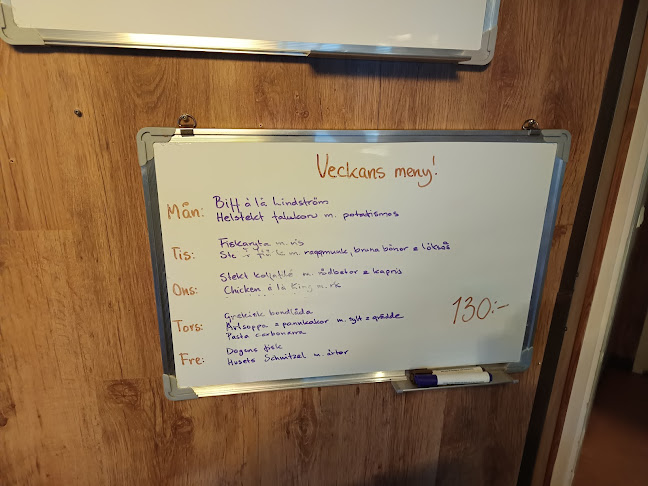 Veckans meny!
Mån: Biff á lá Lindström
Helstekt falukorv m. potatismos
Tis: Fiskgryta m. ris
Stekt fläsk m. raggmunk, bruna bönor & löksås
Ons: Stekt koljafilé m. rödbetor & kapris
Chicken á lá King m. ris
Tors: Grekisk bondlåda
Ärtsoppa & pannkakor m. sylt & grädde
Pasta carbonara
Fre: Dagens fisk
Husets Schnitzel m. ärtor
130:-